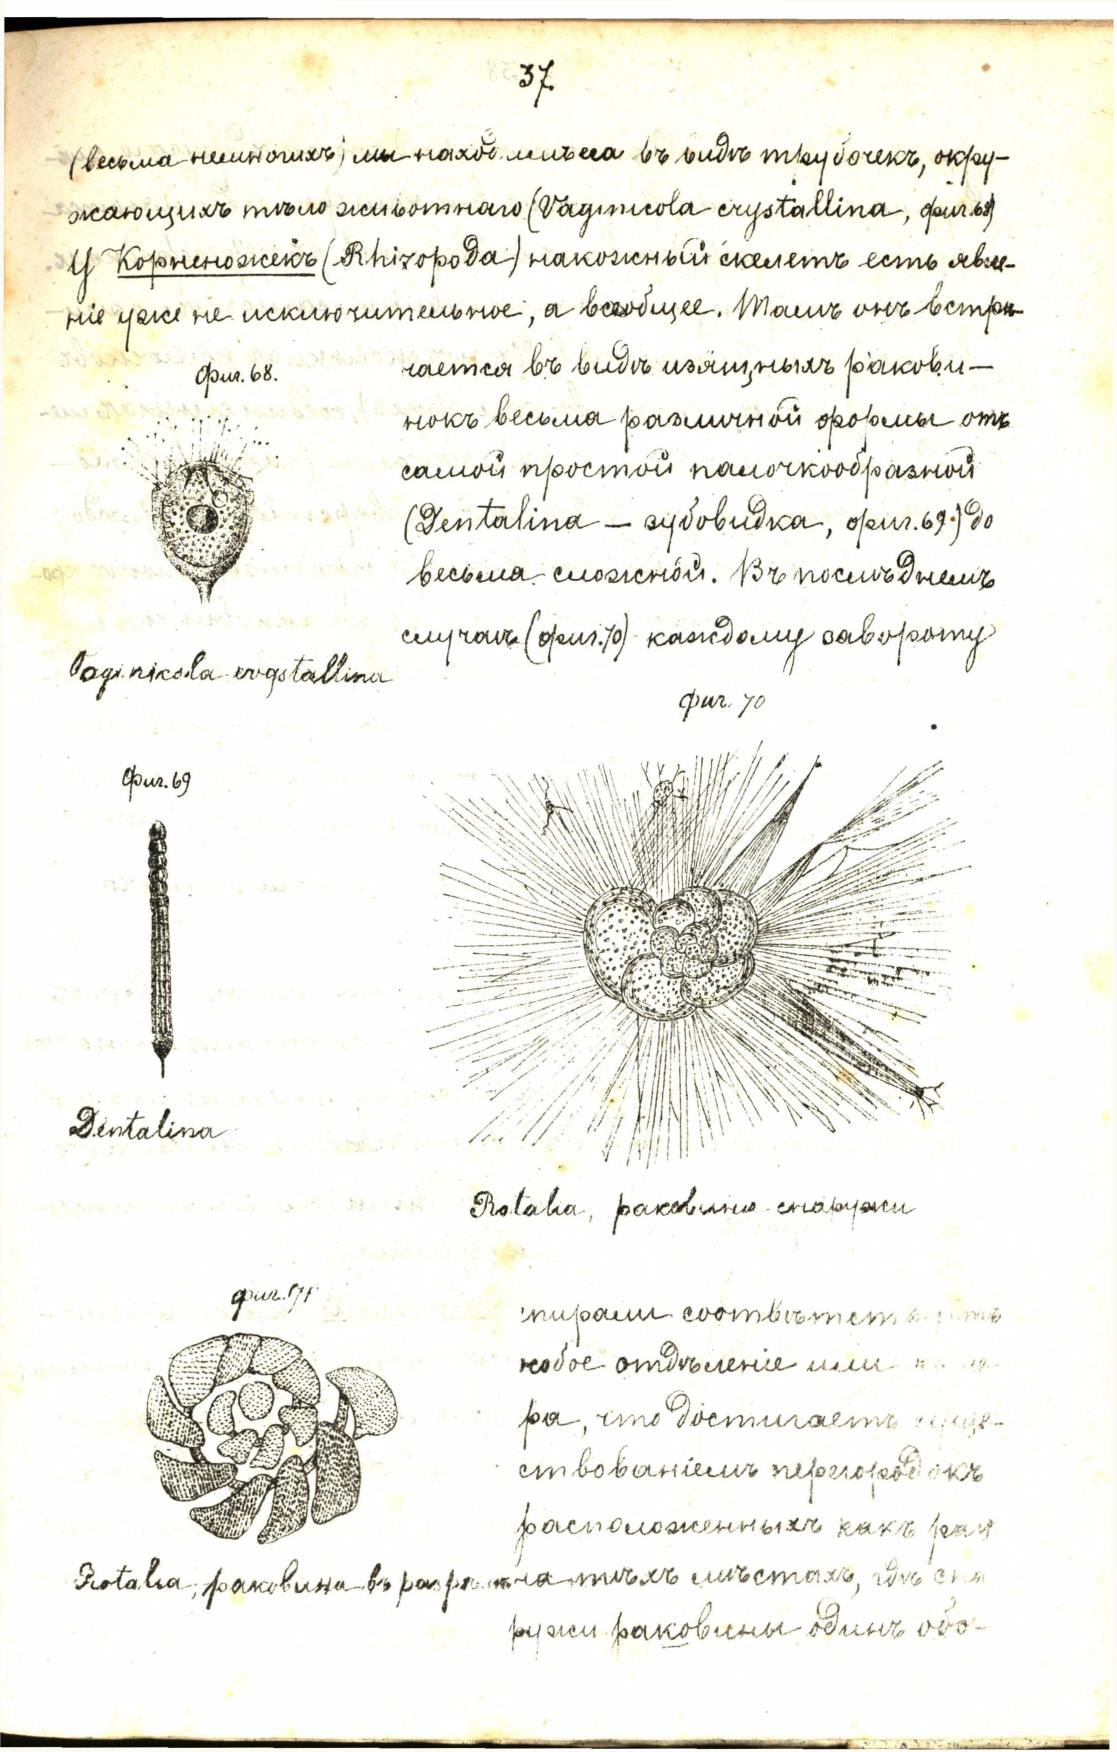 37.
(весьма немногихъ) мы находимъ его въ видѣ трубочекъ, окру-
жающихъ тѣло животнаго (Vaginicola crystallina, фиг. 68)
У Корненожекъ (Rhizopoda) накожный скелетъ есть явле-
ніе уже не исключительное, а всеобщее. Тамъ онъ встрѣ-
чается въ видѣ изящныхъ ракови-
нокъ весьма различной формы отъ
самой простой палочкообразной
(Dentalina — зубовидка, фиг. 69.) до
весьма сложной. Въ послѣднемъ
случаѣ (фиг. 70) каждому завороту
Фиг. 68.
Vaginicola crystallina
Фиг. 69
Dentalina
Фиг. 70
Rotalia, раковина снаружи
спирали соотвѣтствуетъ
особое отдѣленіе или каме-
ра, что достигаетъ суще-
ствованіемъ перегородокъ
расположенныхъ какъ раз
на тѣхъ мѣстахъ, гдѣ сна
ружи раковины одинъ обо-
фиг. 71
Rotalia, раковина въ разрѣзѣ